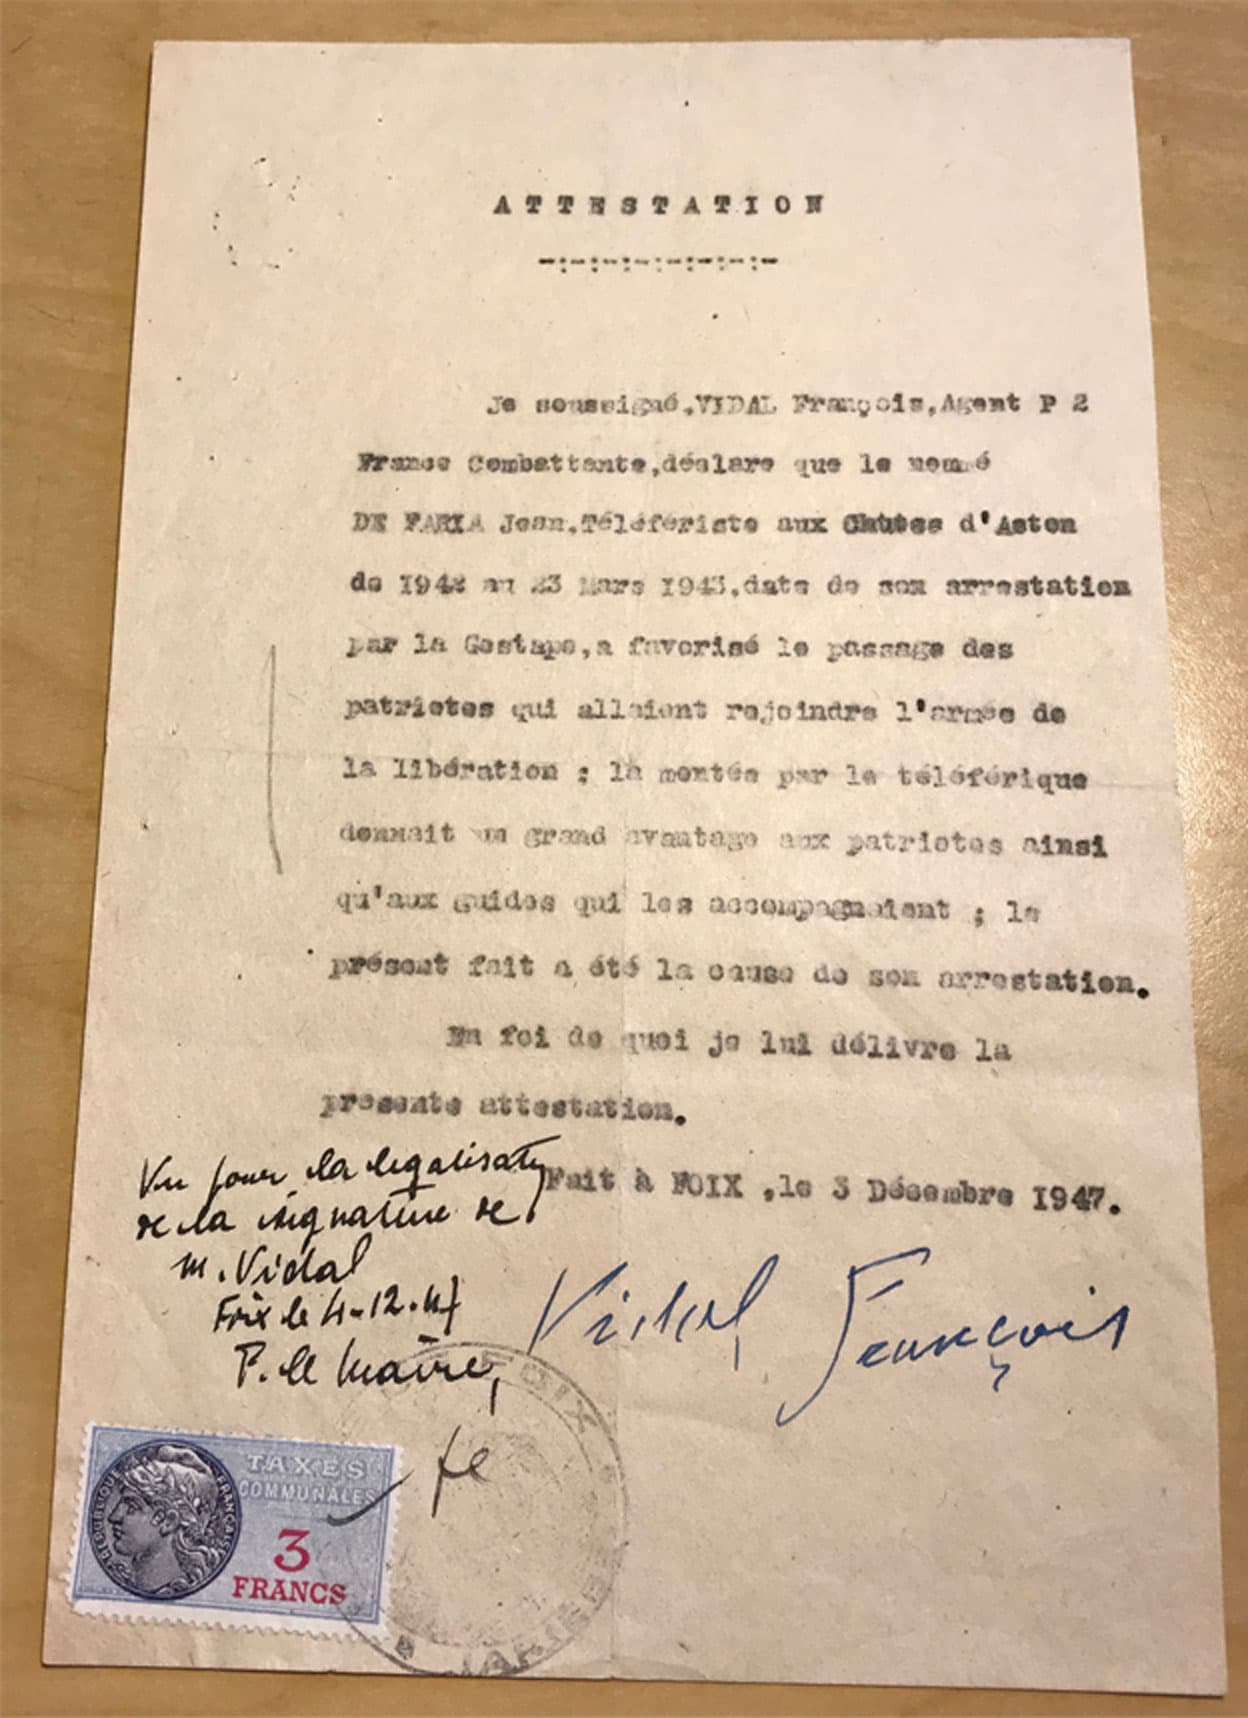 ATTESTATION
Je soussigné,VIDAL François,Agent P 2
France Combattante,déclare que le nommé
DE FARIA Jean.Téléfériste aux Chutes d'Aston
de 1942 au 23 Mars 1943,date de son arrestation
par la Gestapo,a favorisé le passage des
patriotes qui allaient rejoindre l'armée de
la libération ; la montée par le téléférique
donnait un grand avantage aux patriotes ainsi
qu'aux guides qui les accompagnaient ; le
présent fait a été la cause de son arrestation.
En foi de quoi je lui délivre la
présente attestation.
Fait à FOIX ,le 3 Décembre 1947.
Vu pour la légalisation
de la signature de
M. Vidal
Foix le 4-12-47
P. le Maire,
Vidal François
FOIX
MAIRIE
TAXES
COMMUNALES
REPUBLIQUE FRANÇAISE
3
FRANCS